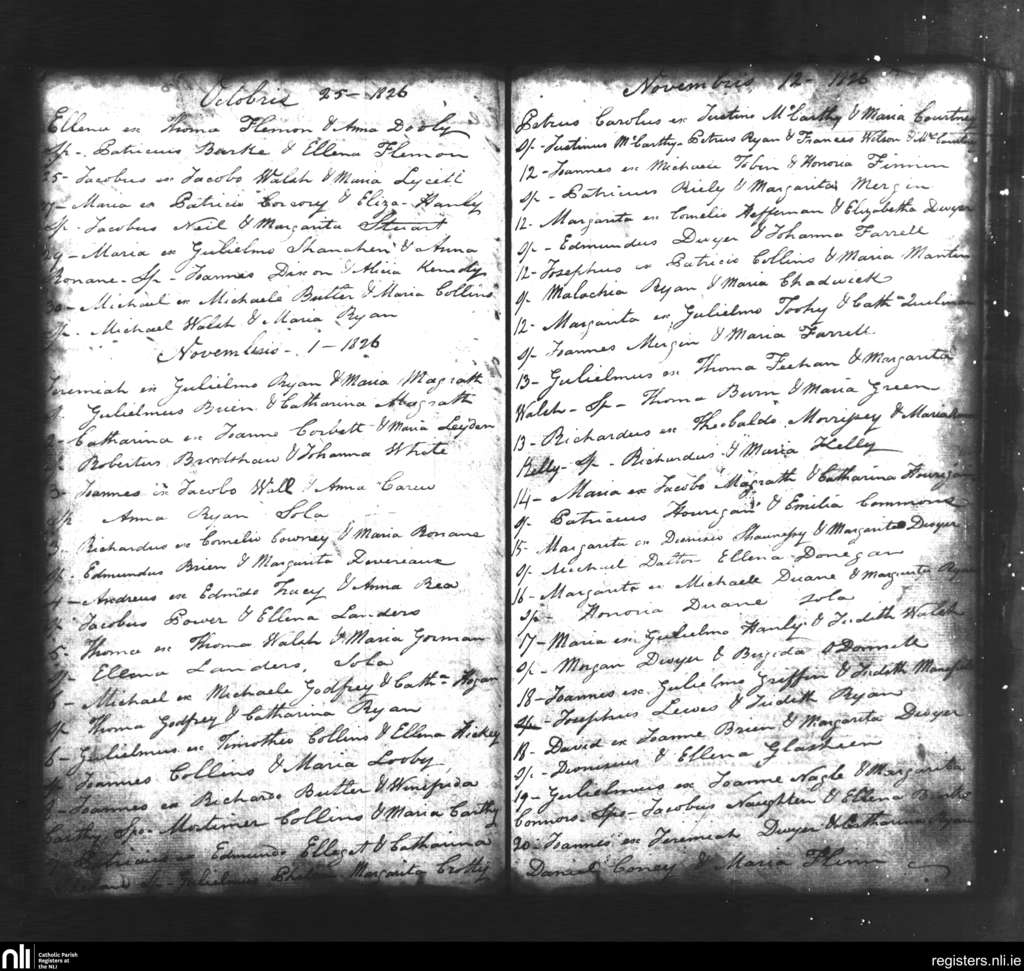 Octobris 25 - 1826
Ellena ex Thoma Flemon & Anna Dooly
Sp - Patricius Burke & Ellena Flemon
25 - Jacobus ex Jacobo Walsh & Maria Lycett
Maria ex Patricio Corcory & Eliza - Hanly
Sp. Jacobus Neil & Margarita Stuart
29 - Maria ex Gulielmo Shanahen & Anna
Ronane - Sp - Joannes Dixon & Alicia Kennedy
30 - Michael ex Michaele Butler & Maria Collins
Sp. Michael Walsh & Maria Ryan
Novembris - 1 - 1826
Jeremiah ex Gulielmo Ryan & Maria Magrath
Gulielmus Brien & Catharina Magrath
Catharina ex Joanne Corbett & Maria Leyden
Robertus Bradshaw & Johanna White
3 - Joannes ex Jacobo Wall & Anna Carew
Sp Anna Ryan Sola
Richardus ex Cornelio Cowney & Maria Ronane
Sp. Edmundus Brien & Margarita Devereaux
4 - Andreus ex Edmdo Tracy & Anna Rea
Jacobus Power & Ellena Landers
5 Thoma ex Thoma Walsh & Maria Gorman
Sp - Ellena Landers, Sola
6 - Michael ex Michaele Godfrey & Cath-a Hogan
Sp Thoma Godfrey & Catharina Ryan
6 - Gulielmus ex Timotheo Collins & Ellena Hickey
Joannes Collins & Maria Looby
Joannes ex Richardo Butler & Winifrida
Carthy Spo - Mortimer Collins & Maria Carthy
Patricius ex Edmundo Ellegot & Catharina
Sp - Gulielmus Margarita Crotty
Novembris 12 - 1826
Petrus Carolus ex Justino McCarthy & Maria Courtney
Sp - Justinus McCarthy - Petrus Ryan & Frances Wilson &
12 - Joannes ex Michaele Tobin & Honoria Finnin
Sp - Patricius Riely & Margarita Mergin
12 - Margarita ex Cornelio Heffernan & Elizabetha Dwyer
Sp - Edmundus Dwyer & Johanna Farrell
12 - Josephus ex Patricio Collins & Maria Mantin
Sp Malachia Ryan & Maria Chadwick
12 - Margarita ex Gulielmo Toohy & Cath-a Quilinan
Sp Joannes Mergin & Maria Farrell
13 - Gulielmus ex Thoma Feehan & Margarita
Walsh - Sp - Thoma Burn & Maria Green
13 - Richardus ex Theobaldo Morrisey & Maria
Kelly - Sp - Richardus & Maria Kelly
14 - Maria ex Jacobo Magrath & Catharina Hourigan
Sp - Patricius Hourigan & Emilia Commons
15 - Margarita ex Dionisio Shaunessy & Margarita Dwyer
Sp Michael Dalton Ellena Donegan
16 - Margarita ex Michaele Duane & Margarita Ryan
Sp - Honoria Duane Sola
17 - Maria ex Gulielmo Hanly & Judith Walsh
Sp - Morgan Dwyer & Brigida O Donnell
18 - Joannes ex Gulielmo Griffin & Judith
Sp - Josephus Lewes & Judith Ryan
18 - David ex Joanne Brien & Margarita Dwyer
Sp - Dionisius & Ellena Glasheen
19 - Gulielmus ex Joanne Nagle & Margarita
Connors - Spo - Jacobus Naughten & Ellena Burke
20 - Joannes ex Jeremiah Dwyer & Catharina Ryan
Daniel Coney & Maria Flinn
nli Catholic Parish
Registers at
the NLI
registers.nli.ie